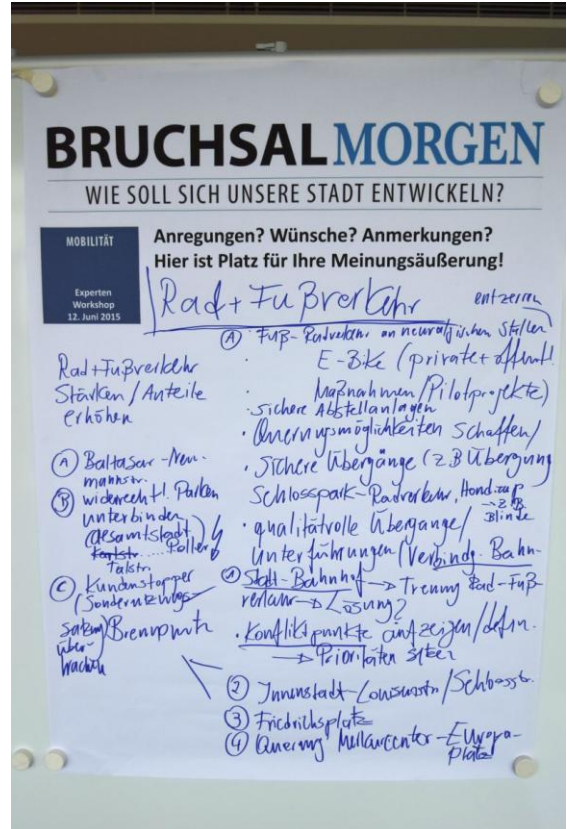 BRUCHSAL MORGEN
WIE SOLL SICH UNSERE STADT ENTWICKELN?
MOBILITÄT
Experten
Workshop
12. Juni 2015
Anregungen? Wünsche? Anmerkungen?
Hier ist Platz für Ihre Meinungsäußerung!
Rad + Fußverkehr
entzerren
Rad + Fußverkehr
Stärken / Anteile
erhöhen
(A) Baltasar-Neu-
mannstr.
(B) widerrechtl. Parken
unterbinden
(Gesamtstadt)
.... Poller
Talstr.
(C) Kundenstopper
(Sondernutzungs-
satzung
über-
wachen
Brennpunkte
(A) · Fuß- Radverkehr an neuralgischen Stellen
E-Bike (private + öffentl.
Maßnahmen / Pilotprojekte)
· sichere Abstellanlagen
· Querungsmöglichkeiten schaffen /
· Sichere Übergänge (z.B Übergang
Schlosspark - Radverkehr,
→ z.B
Blinde
· qualitätvolle Übergänge /
Unterführungen / Verbindg. Bahn-
Stadt-Bahnhof → Trennung Rad-Fuß-
verkehr → Lösung?
· Konfliktpunkte aufzeigen / defin.
→ Prioritäten setzen
(2) Innenstadt - / Schlossstr.
(3) Friedrichsplatz
(4) Querung - Europa-
platz